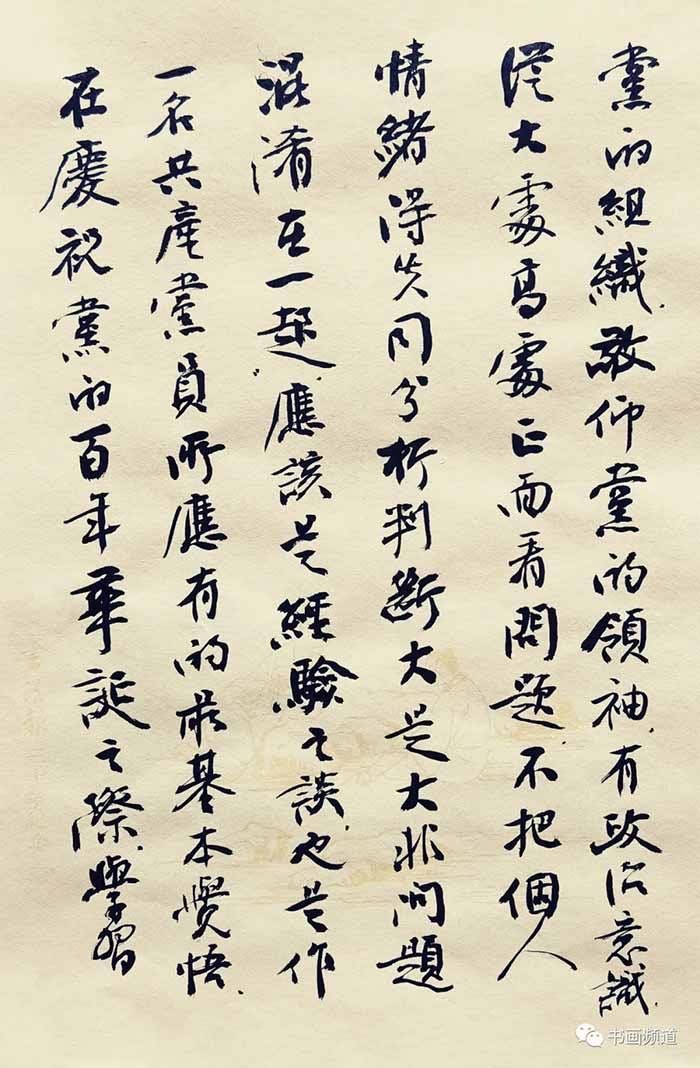 黨的組織敬仰黨的領袖有政治意識
從大處高處正面看問題不把個人
情緒得失同分析判斷大是大非問題
混淆在一起應該是經驗之談也是作
一名共產黨員所應有的最基本覺悟
在慶祝黨的百年華誕之際學習
书画频道